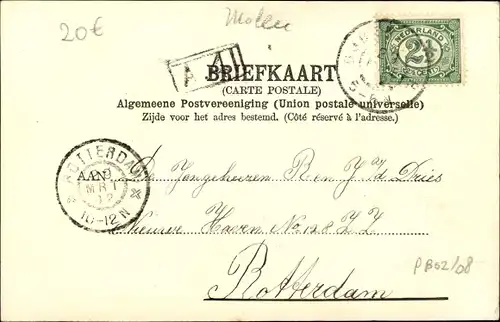 20€
Molen
A
BRIEFKAART
(CARTE POSTALE)
Algemeene Postvereeniging (Union postale universelle)
Zijde voor het adres bestemd. (Côté réservé à l'adresse.)
NEDERLAND
2½
ROTTERDAM
MRT
12
10-12 N
AAN
Jongeheeren R en J v d Dries
Nieuwe Haven No 128 Z Z
Rotterdam
PB02/08